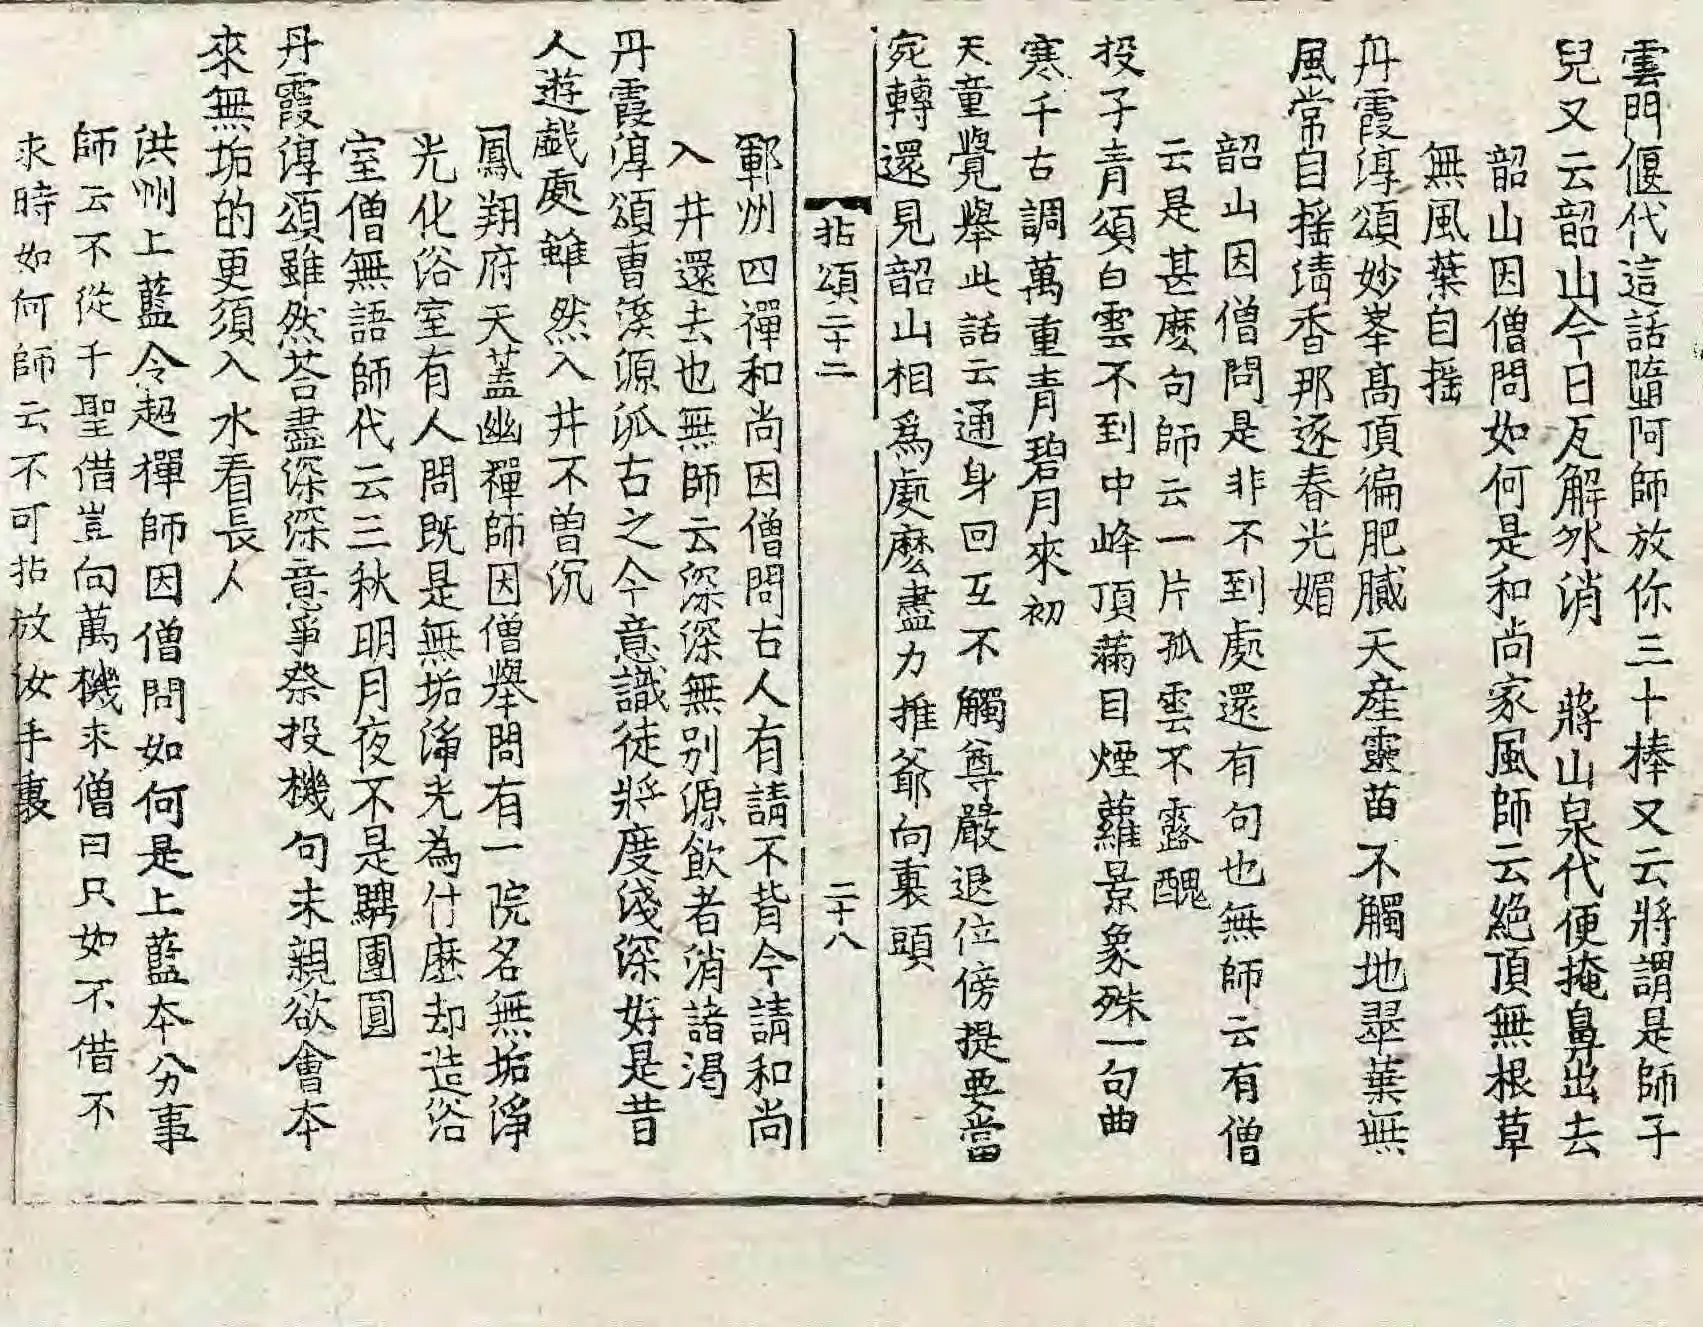 雲門偃代這話墮阿師放你三十棒又云將謂是師子
兒又云韶山今日瓦解氷消　蔣山泉代便掩鼻出去
韶山因僧問如何是和尚家風師云絕頂無根草
無風葉自搖
丹霞淳頌妙峯髙頂徧肥膩天産靈苗不觸地翠葉無
風常自摇清香那逐春光媚
韶山因僧問是非不到處還有句也無師云有僧
云是甚麽句師云一片孤雲不露醜
投子青頌白雲不到中峰頂滿目煙蘿景象殊一句曲
寒千古調萬重青碧月來初
天童覺舉此話云通身回互不觸尊嚴退位傍提要當
宛轉還見韶山相爲處麽盡力推爺向裏頭
拈頌二十二　二十八
鄆州四禪和尚因僧問古人有請不背今請和尚
入井還去也無師云深深無别源飲者消諸渴
丹霞淳頌曹溪源派古之今意識徒將度淺深好是昔
人遊戯處雖然入井不曽沉
鳳翔府天蓋幽禪師因僧舉問有一院名無垢淨
光化浴室有人問既是無垢淨光為什麽却造浴
室僧無語師代云三秋明月夜不是騁團圓
丹霞淳頌雖然荅盡深深意爭祭投機句未親欲會本
來無垢的更須入水看長人
洪州上藍令超禪師因僧問如何是上藍本分事
師云不從千聖借豈向萬機求僧曰只如不借不
求時如何師云不可拈放汝手裏